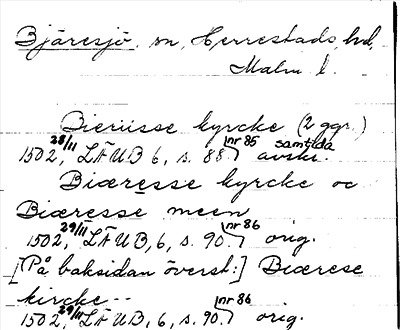 Bjäresjö, sn, Herrestads hd,
Malm. l.
Bierüsse kyrcke (2 ggr.)
1502 28/11, LÄUB 6, s. 88. nr 85 samtida avskr.
Biæresse kyrcke oc
Biæresse meen
1502, 29/11 LÄUB, 6, s. 90. nr 86 orig.
[På baksidan överst:] Biærese
kircke--
1502, 29/11 LÄUB, 6, s. 90. nr 86 orig.